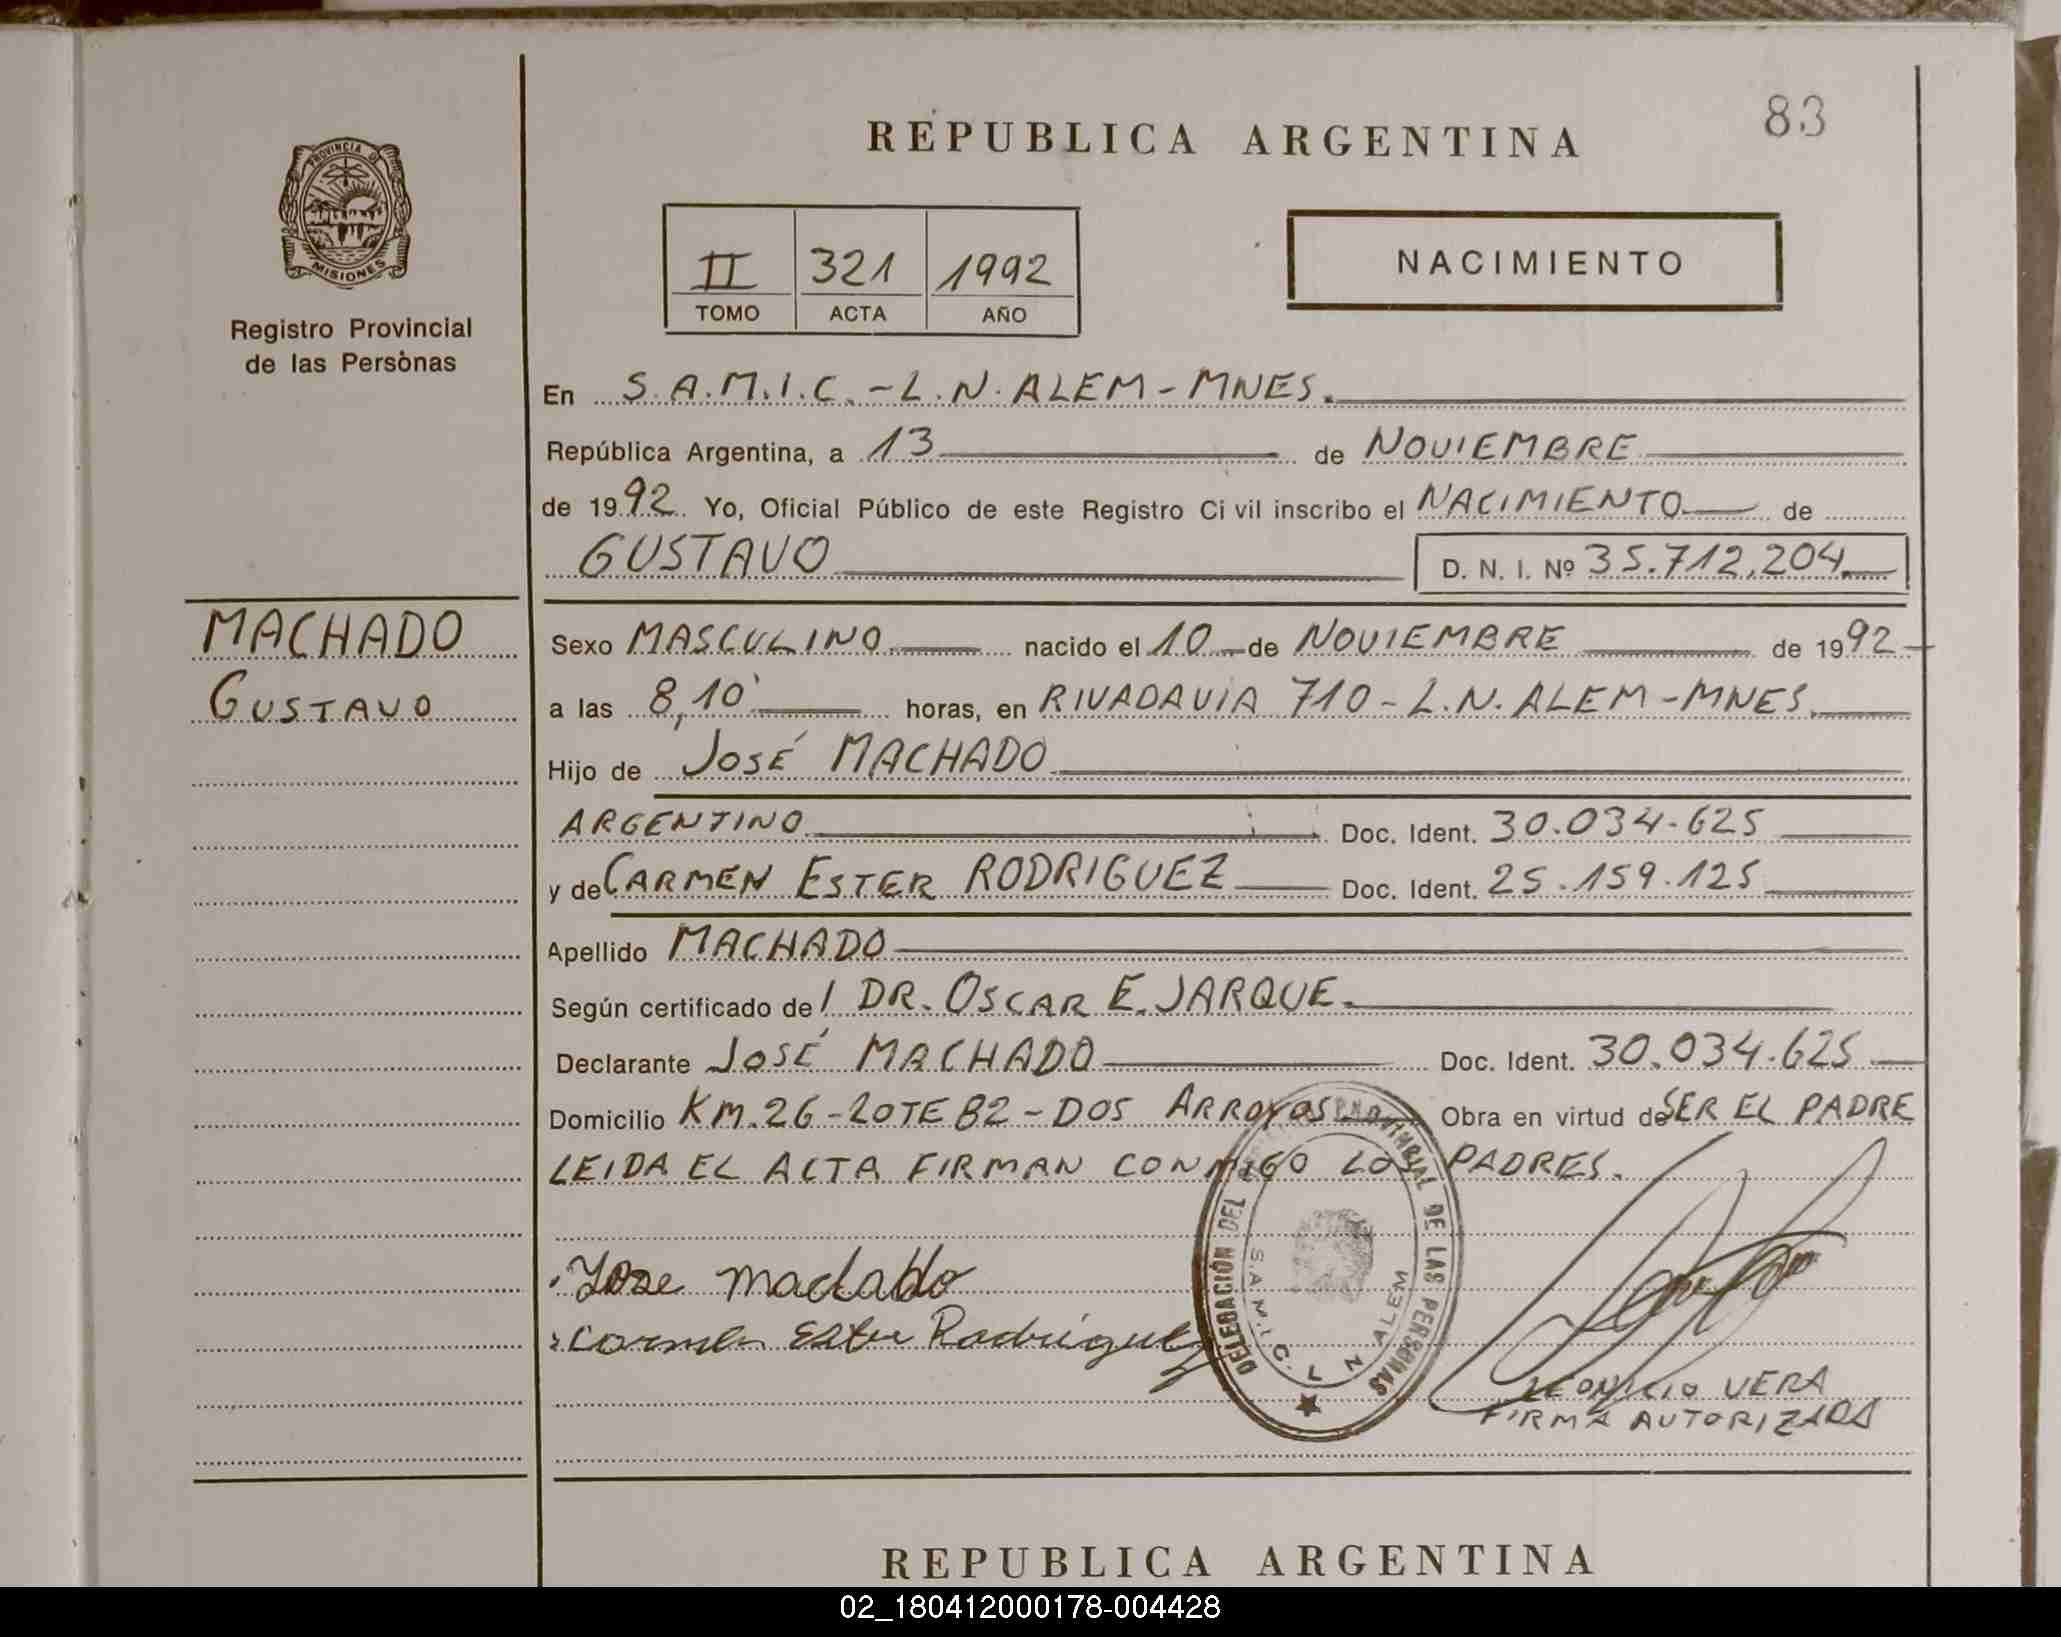 83
REPUBLICA ARGENTINA
PROVINCIA DE
MISIONES
Registro Provincial
de las Persònas
II 321 1992
TOMO ACTA AÑO
NACIMIENTO
En S.A.M.I.C. - L.N. ALEM - MNES.
República Argentina, a 13 de NOVIEMBRE
de 1992 Yo, Oficial Público de este Registro Ci vil inscribo el NACIMIENTO de
GUSTAVO D. N. I. Nº 35.712.204
MACHADO
GUSTAVO
Sexo MASCULINO nacido el 10 de NOVIEMBRE de 1992
a las 8,10' horas, en RIVADAVIA 710 - L.N. ALEM - MNES.
Hijo de JOSÉ MACHADO
ARGENTINO Doc. Ident. 30.034.625
y de CARMEN ESTER RODRIGUEZ Doc. Ident. 25.159.125
Apellido MACHADO
Según certificado de l DR. OSCAR E. JARQUE.
Declarante JOSÉ MACHADO Doc. Ident. 30.034.625
Domicilio KM. 26 - LOTE 82 - DOS ARROYOS Obra en virtud de SER EL PADRE
LEIDA EL ACTA FIRMAN CONMIGO LOS PADRES.
Jose machado
Carmen Ester Rodriguez
DELEGACIÓN DEL PROVINCIAL DE LAS PERSONAS
S.A.M.I.C. L N ALEM
LEONICIO VERA
FIRMA AUTORIZADA
REPUBLICA ARGENTINA
02_180412000178-004428